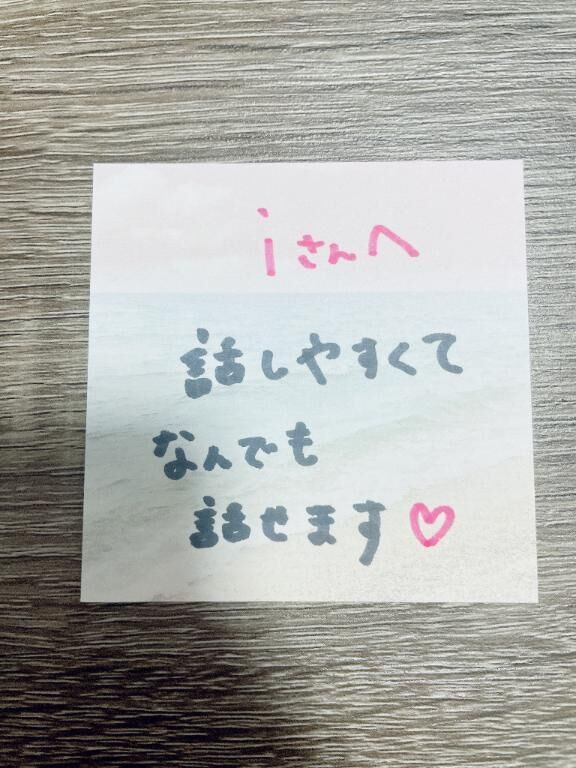 iさんへ
話しやすくて
なんでも
話せます♡